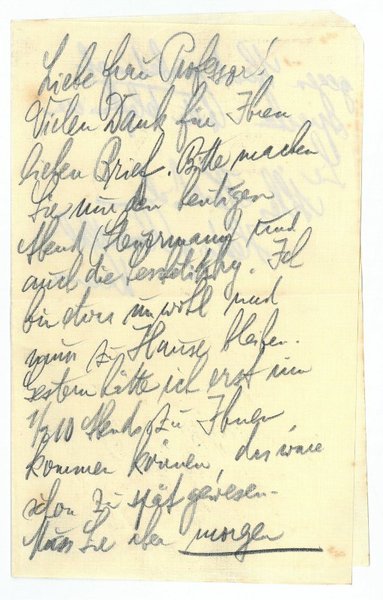 Liebe Frau Professor!
Vielen Dank für Ihren
lieben Brief. Bitte machen
Sie nur den heutigen
Abend (Heuermann) und
auch die. Ich
bin etwas unwohl und
muss zu Hause bleiben.
Gestern hätte ich erst um
1/2 10 Abends zu Ihnen
kommen können, das wäre
schon zu spät gewesen.
Muss Sie aber morgen